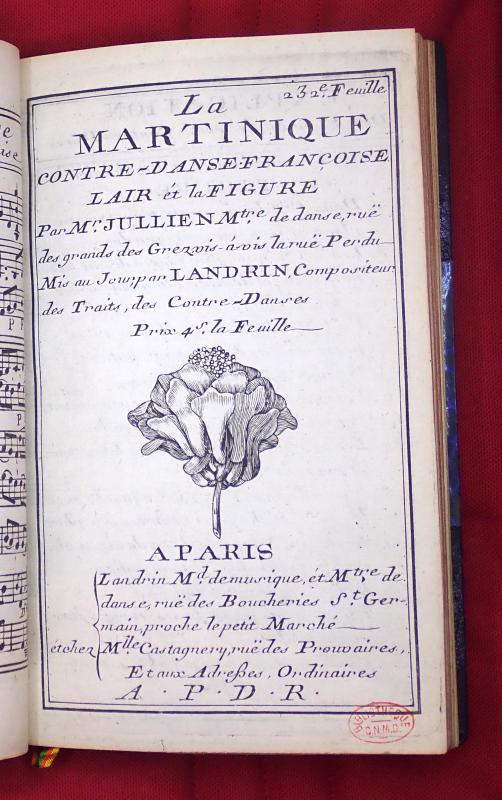 232e. Feuille
La
MARTINIQUE
CONTRE-DANSE FRANÇOISE
LAIR ét la FIGURE
Par Mr. JULLIEN Mtre. de danse, ruë
des grands des Grez vis-á-vis la ruë Perdu
Mis au Jour, par LANDRIN, Compositeur
des Traits, des Contre-Danses
Prix 4s. la Feuille
A PARIS
Landrin Md. de musique, ét Mtre. de
danse, ruë des Boucheries St. Ger-
main, proche le petit Marché
ét chez Mlle Castagnery, ruë des Prouvaires,
Et aux Adreßes, Ordinaires
A . P . D . R .
BIBLIOTHEQUE
C.N.M.D.